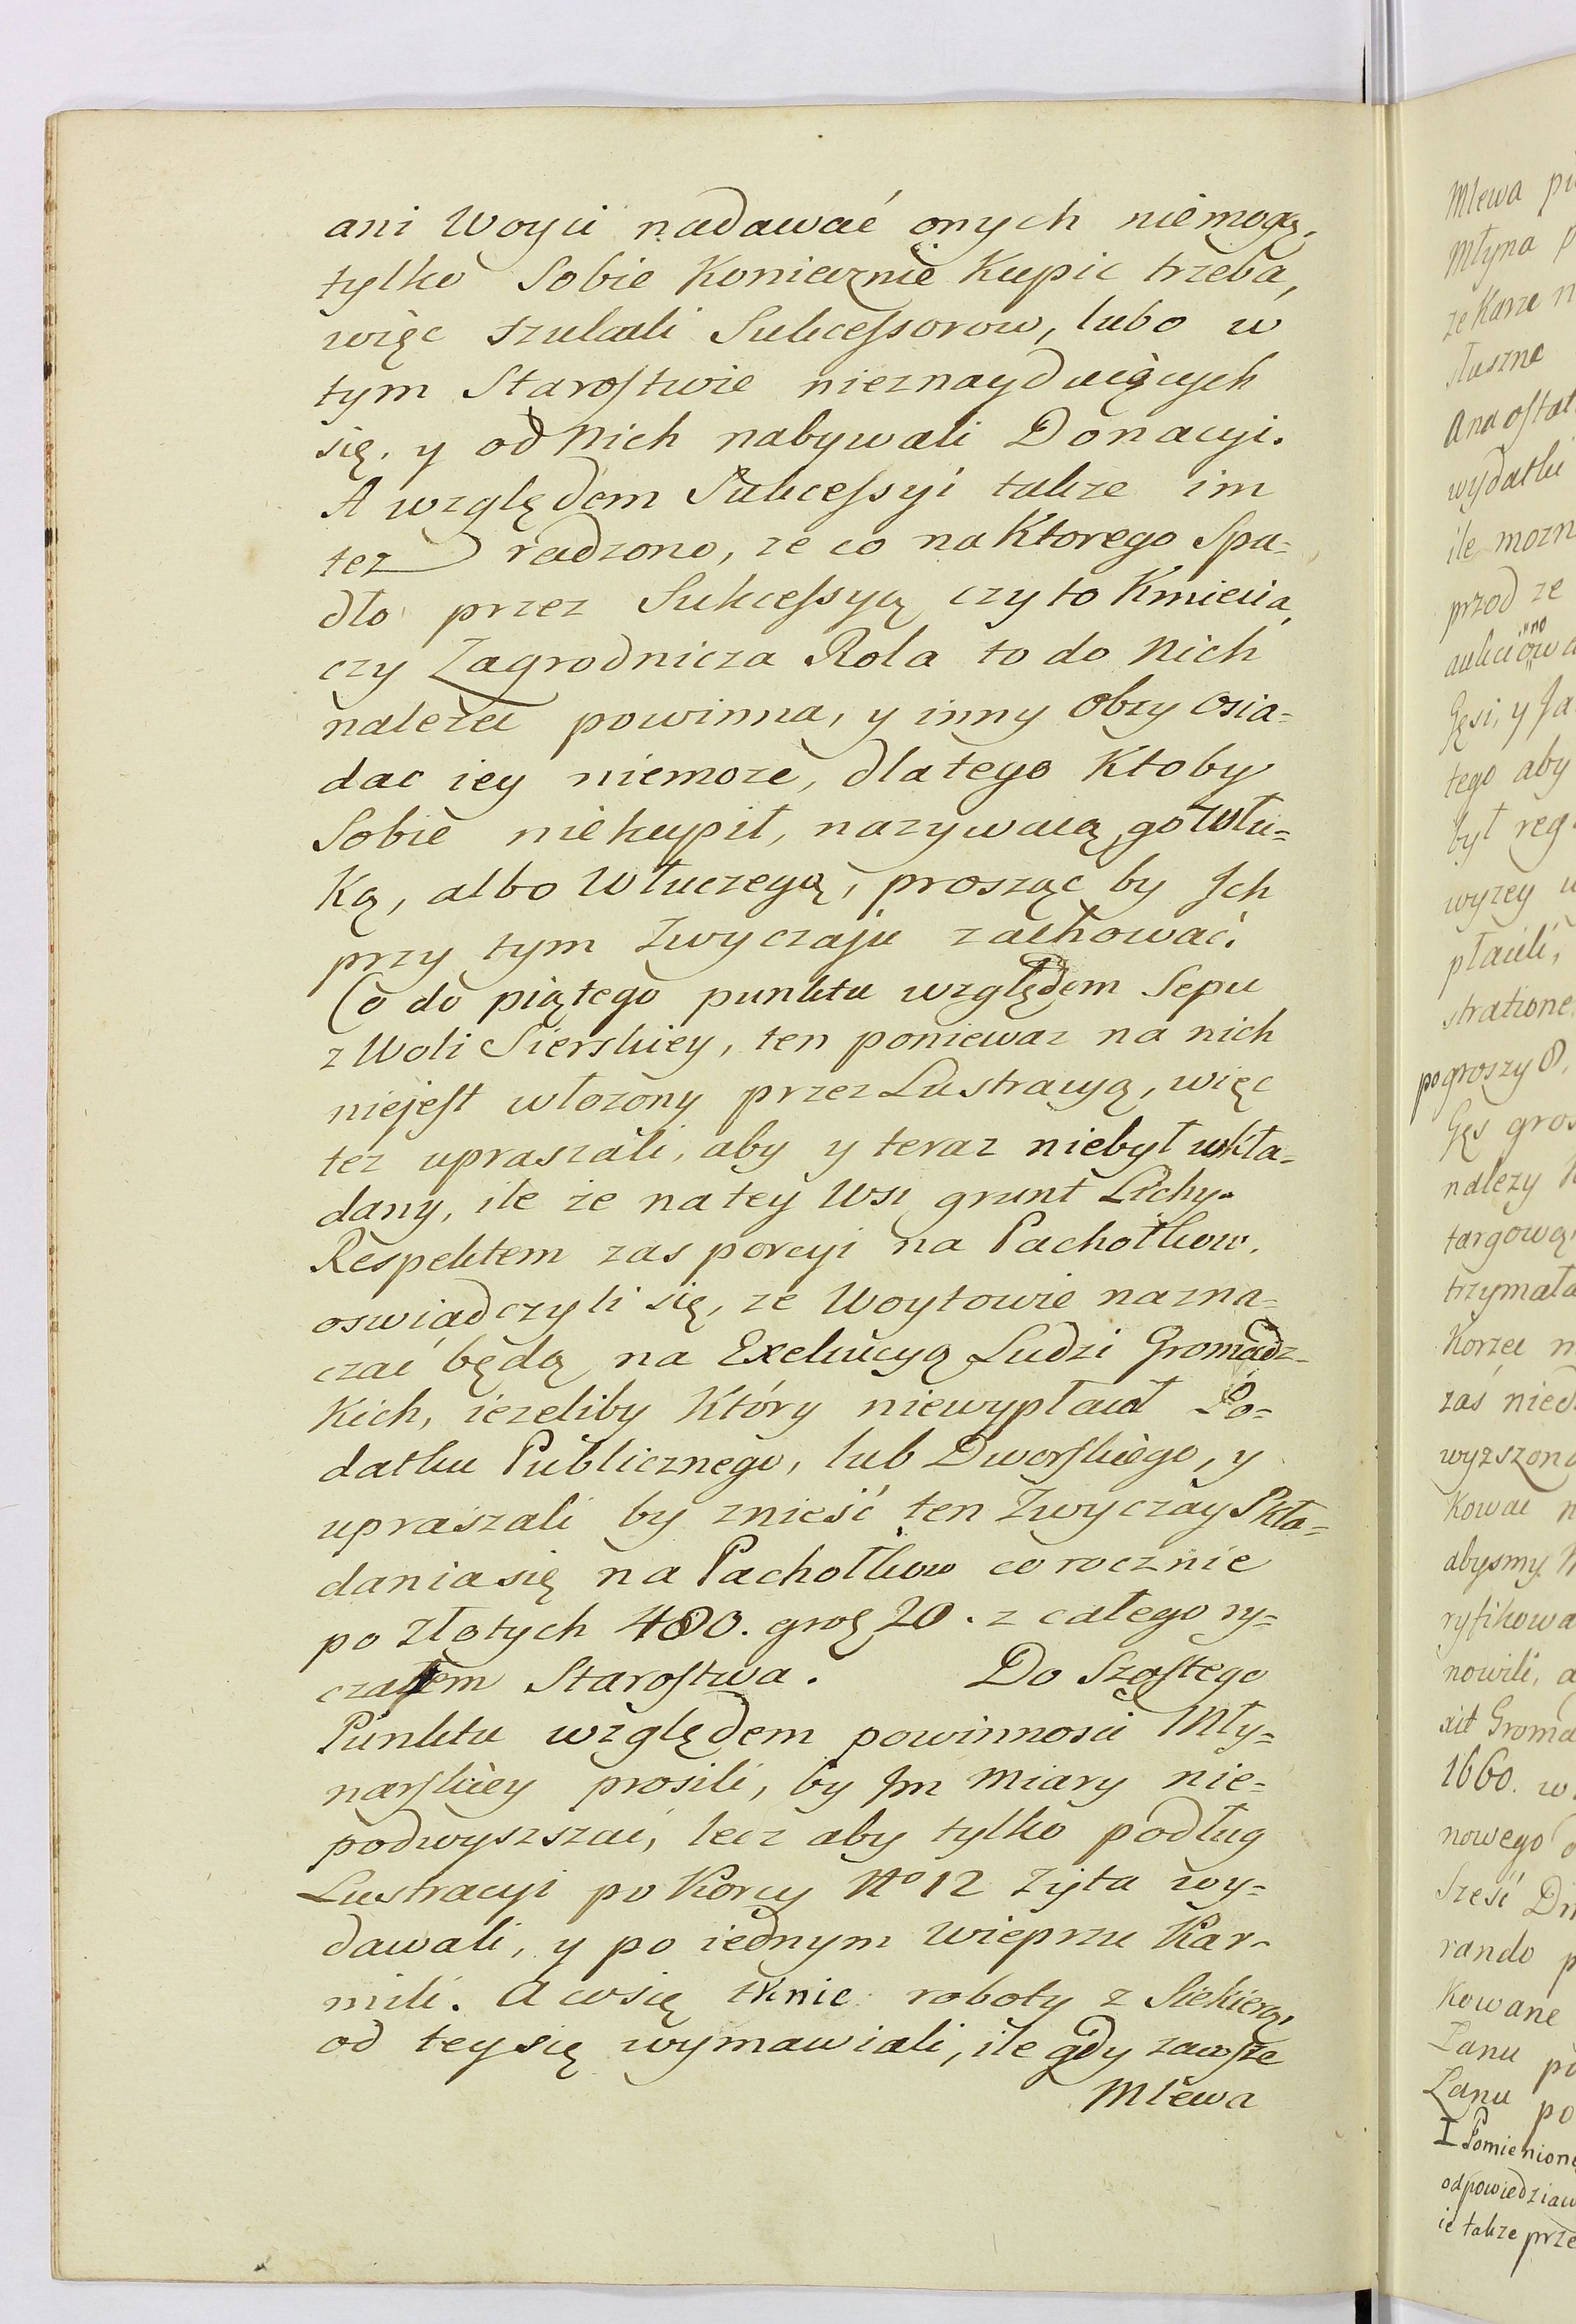 ani Woyci nadawać onych niemogą,
tylko Sobie Koniecznie Kupic trzeba,
więc szukali Sukcessorow, lubo w
tym Starostwie nieznayduiących
się, y od Nich nabywali Donacyi.
A względem Sukcessyi takze im
tez radzono, ze co na Ktorego Spa-
dło przez Sukcessyą czy to Kmiecia,
czy Zagrodnicza Rola to do Nich
nalezec powinna, y inny Obzy osia-
dac iey niemoze, dlatego Ktoby
Sobie niekupił, nazywaią go Włu-
Ką, albo Włuczegą, prosząc by Ich
przy tym Zwyczaju zachować.
Co do piątego punktu względem Sepu
z Woli Sierskiey, ten poniewaz na nich
niejest włozony przez Lustracyą, więc
tez upraszali, aby y teraz niebył wkła-
dany, ile że na tey Wsi grunt Lichy.
Respektem zas porcyi na Pachołkow,
oswiadczyli się, ze Woytowie nazna-
czać będą na Exekucyą Ludzi Gromadz-
Kich, iezeliby Który niewypłacił Po-
datku Publicznego, lub Dworskiego, y
upraszali by znieść ten Zwyczay Skła-
dania się na Pachołkow co rocznie
po Złotych 480. grosz 20. z całego ry-
czałtem Starostwa. Do Szostego
Punktu względem powinnosci Mły-
narskiey prosili, by Im Miary nie-
podwyszszać, lecz aby tylko podług
Lustracyi po Korcy No 12 Zyta wy-
dawali, y po iednym Wieprzu Kar-
mili. A co się tknie roboty z Siekierą,
od tey się wymawiali, ile gdy zawsze
Mlewa
Mlewa
Młyna
ze Karze
słuszne
wydatki
przod ze
Gęsi, y
tego aby
był
wyzey
płacili,
po groszy 8.
Gęs
nalezy
targową
trzymała
Korzec
zaś
Kowac
abysmy
nowili,
1660. w
nowego
Sześć
rando
Kowane
Łanu
Łanu po
ie takze